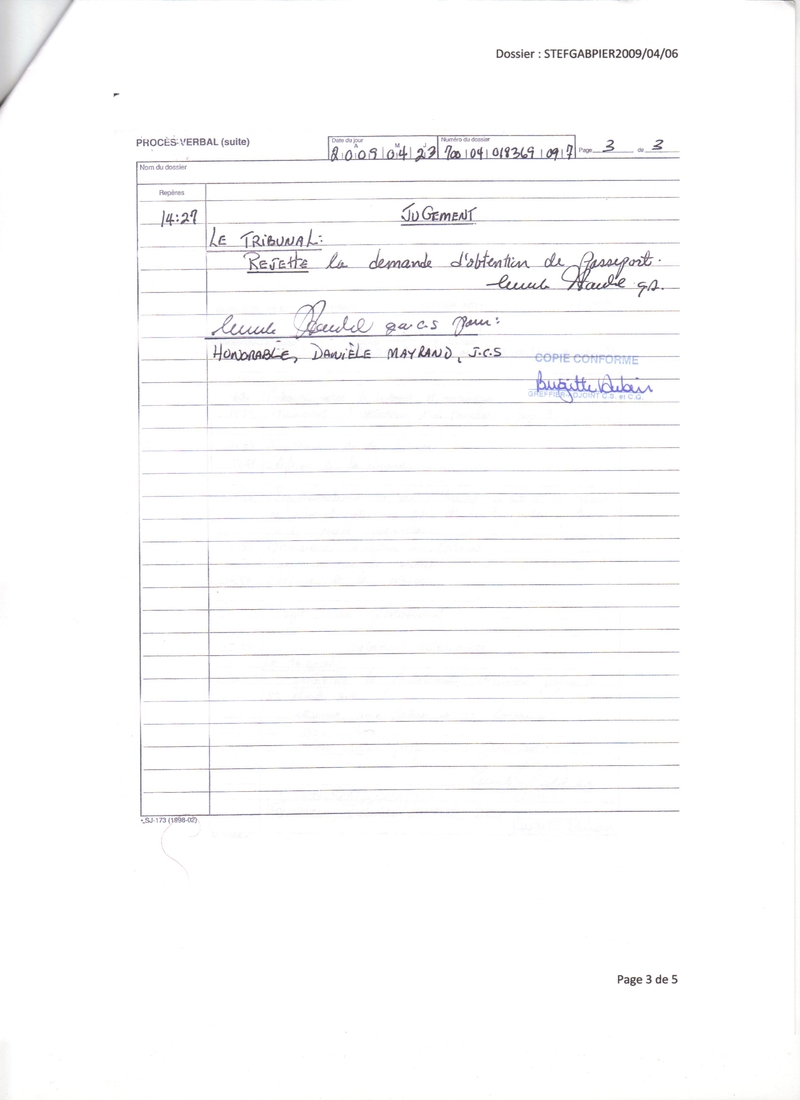 Dossier : STEFGABPIER2009/04/06
PROCÈS-VERBAL (suite)
Date du jour
A M J
2009 04 27
Numéro du dossier
700 04 018369 091
Page 3 de 3
Nom du dossier
Repères
14:27
JUGEMENT
LE TRIBUNAL:
REJETTE la demande d'obtention de Passeport.
g.a.
pour:
HONORABLE, DANIÈLE MAYRAND, J.C.S
COPIE CONFORME
Brigitte
GREFFIER ADJOINT C.S. et C.Q.
SJ-173 (1998-02)
Page 3 de 5